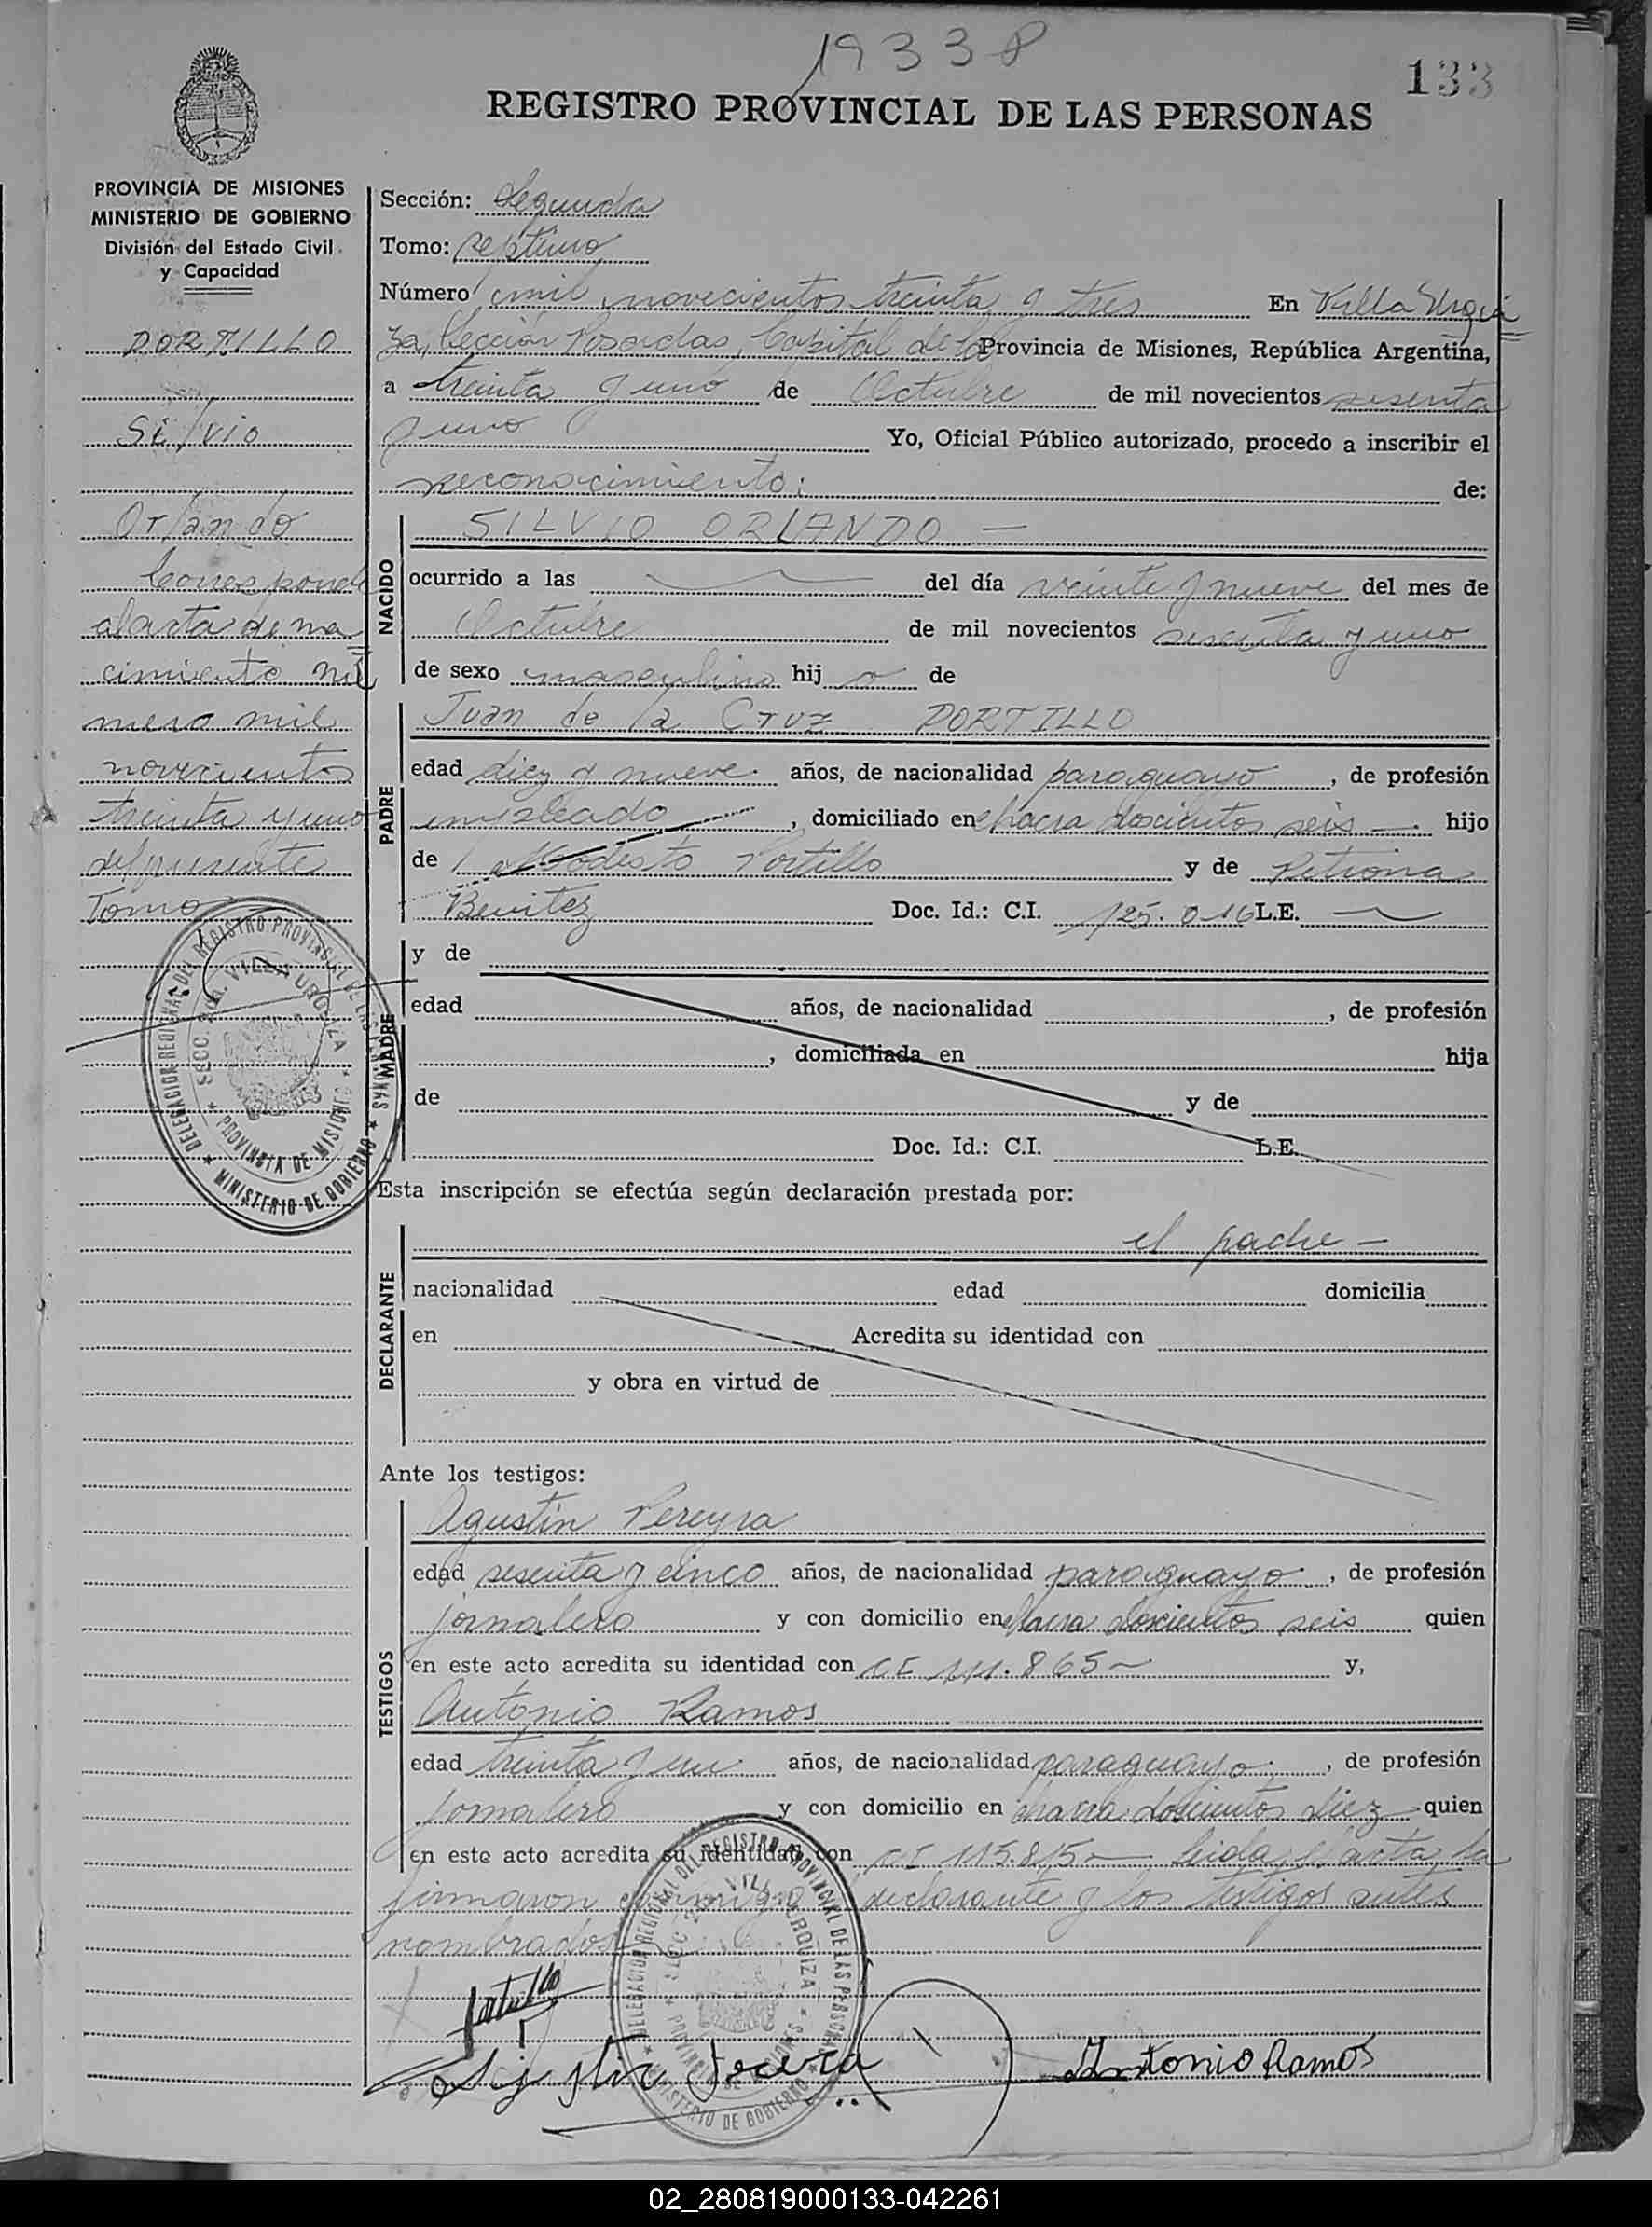 1933 P
133
REGISTRO PROVINCIAL DE LAS PERSONAS
PROVINCIA DE MISIONES
MINISTERIO DE GOBIERNO
División del Estado Civil
y Capacidad
PORTILLO
Silvio
Orlando
Corresponde
al acta de na
cimiento nú
mero mil
novecientos
treinta y uno
del presente
Tomo
DELEGACION REGIONAL DEL REGISTRO PROVINCIAL DE LAS PERSONAS
SECC. 2da. VILLA URQUIZA
PROVINCIA DE MISIONES
MINISTERIO DE GOBIERNO
Sección: Segunda
Tomo: septimo
Número mil novecientos treinta y tres En Villa Urqui
za, Sección Posadas, Capital de la Provincia de Misiones, República Argentina,
a treinta y uno de Octubre de mil novecientos sesenta
y uno Yo, Oficial Público autorizado, procedo a inscribir el
reconocimiento: de:
NACIDO
SILVIO ORLANDO —
ocurrido a las del día veinte y nueve del mes de
Octubre de mil novecientos sesenta y uno
de sexo masculino hij o de
PADRE
Juan de la Cruz PORTILLO
edad diez y nueve años, de nacionalidad paraguayo, de profesión
empleado, domiciliado en chacra doscientos seis — hijo
de Modesto Portillo y de Petrona
Benitez Doc. Id.: C.I. 125.016 L.E. —
MADRE
y de
edad años, de nacionalidad , de profesión
, domiciliada en hija
de y de
Doc. Id.: C.I. L.E.
Esta inscripción se efectúa según declaración prestada por:
DECLARANTE
el padre —
nacionalidad edad domicilia
en Acredita su identidad con
y obra en virtud de
Ante los testigos:
TESTIGOS
Agustin Pereyra
edad sesenta y cinco años, de nacionalidad paraguayo, de profesión
jornalero y con domicilio en chacra doscientos seis quien
en este acto acredita su identidad con CI 111.865 y,
Antonio Ramos
edad treinta y un años, de nacionalidad paraguayo, de profesión
jornalero y con domicilio en chacra doscientos diez quien
en este acto acredita su identidad con CI 115.815 — Leida el acta, la
firmaron conmigo declarante y los testigos antes
nombrados
DELEGACION REGIONAL DEL REGISTRO PROVINCIAL DE LAS PERSONAS
SECC. 2da. VILLA URQUIZA
PROVINCIA DE MISIONES
MINISTERIO DE GOBIERNO
Portillo
Antonio Ramos
02_280819000133-042261